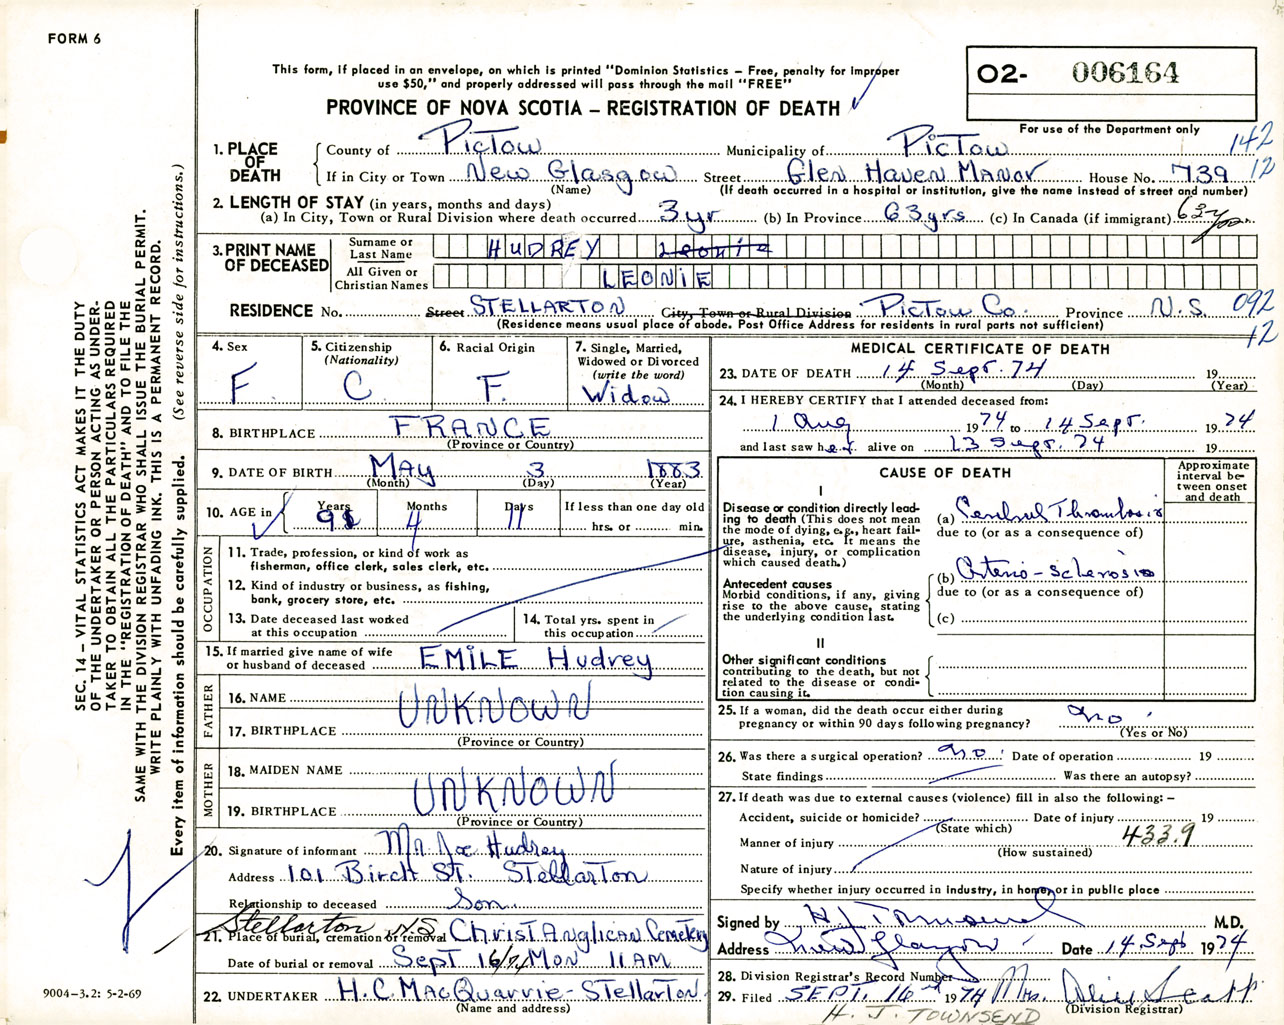 FORM 6
This form, if placed in an envelope, on which is printed "Dominion Statistics — Free, penalty for improper
use $50," and properly addressed will pass through the mail "FREE"
O2- 006164
PROVINCE OF NOVA SCOTIA — REGISTRATION OF DEATH
For use of the Department only
142
12
1. PLACE OF DEATH
County of Pictou Municipality of Pictou
If in City or Town New Glasgow Street Glen Haven Manor House No. 739
(Name) (If death occurred in a hospital or institution, give the name instead of street and number)
2. LENGTH OF STAY (in years, months and days)
(a) In City, Town or Rural Division where death occurred 3 yr (b) In Province 63 yrs (c) In Canada (if immigrant) 63 yrs
3. PRINT NAME OF DECEASED
Surname or Last Name HUDREY Leonie
All Given or Christian Names LEONIE
RESIDENCE No. Street STELLARTON City, Town or Rural Division Pictou Co. Province N.S.
092
12
(Residence means usual place of abode. Post Office Address for residents in rural parts not sufficient)
4. Sex F
5. Citizenship (Nationality) C
6. Racial Origin F.
7. Single, Married, Widowed or Divorced (write the word) Widow
8. BIRTHPLACE FRANCE
(Province or Country)
9. DATE OF BIRTH MAY 3 1883
(Month) (Day) (Year)
10. AGE in Years 91 Months 4 Days 11 If less than one day old
hrs. or min.
OCCUPATION
11. Trade, profession, or kind of work as
fisherman, office clerk, sales clerk, etc.
12. Kind of industry or business, as fishing,
bank, grocery store, etc.
13. Date deceased last worked
at this occupation
14. Total yrs. spent in
this occupation
15. If married give name of wife
or husband of deceased EMILE Hudrey
FATHER
16. NAME UNKNOWN
17. BIRTHPLACE
(Province or Country)
MOTHER
18. MAIDEN NAME UNKNOWN
19. BIRTHPLACE
(Province or Country)
20. Signature of informant Mr Joe Hudrey
Address 101 Birch St. Stellarton
Relationship to deceased Son.
Stellarton N.S.
21. Place of burial, cremation or removal Christ Anglican Cemetery
Date of burial or removal Sept 16/74 Mon 11 AM
22. UNDERTAKER H.C. MacQuarrie - Stellarton
(Name and address)
MEDICAL CERTIFICATE OF DEATH
23. DATE OF DEATH 14 Sept. 74 19
(Month) (Day) (Year)
24. I HEREBY CERTIFY that I attended deceased from:
1 Aug 1974 to 14 Sept. 1974
and last saw her alive on 13 Sept. 74 19
CAUSE OF DEATH
Approximate interval between onset and death
I
Disease or condition directly leading to death (This does not mean the mode of dying, e.g., heart failure, asthenia, etc. It means the disease, injury, or complication which caused death.)
(a) Cerebral Thrombosis
due to (or as a consequence of)
Antecedent causes
Morbid conditions, if any, giving rise to the above cause, stating the underlying condition last.
(b) Arterio-sclerosis
due to (or as a consequence of)
(c)
II
Other significant conditions
contributing to the death, but not related to the disease or condition causing it.
25. If a woman, did the death occur either during
pregnancy or within 90 days following pregnancy? no
(Yes or No)
26. Was there a surgical operation? no Date of operation 19
State findings Was there an autopsy?
27. If death was due to external causes (violence) fill in also the following: —
Accident, suicide or homicide? Date of injury 19
(State which)
433.9
Manner of injury
(How sustained)
Nature of injury
Specify whether injury occurred in industry, in home, or in public place
Signed by H. J. Townsend M.D.
Address New Glasgow Date 14 Sept 1974
28. Division Registrar's Record Number
29. Filed SEPT. 16 1974 Mrs.
(Division Registrar)
H. J. TOWNSEND
SEC. 14 — VITAL STATISTICS ACT MAKES IT THE DUTY
OF THE UNDERTAKER OR PERSON ACTING AS UNDER-
TAKER TO OBTAIN ALL THE PARTICULARS REQUIRED
IN THE "REGISTRATION OF DEATH" AND TO FILE THE
SAME WITH THE DIVISION REGISTRAR WHO SHALL ISSUE THE BURIAL PERMIT.
WRITE PLAINLY WITH UNFADING INK. THIS IS A PERMANENT RECORD.
Every item of information should be carefully supplied. (See reverse side for instructions.)
9004-3.2: 5-2-69